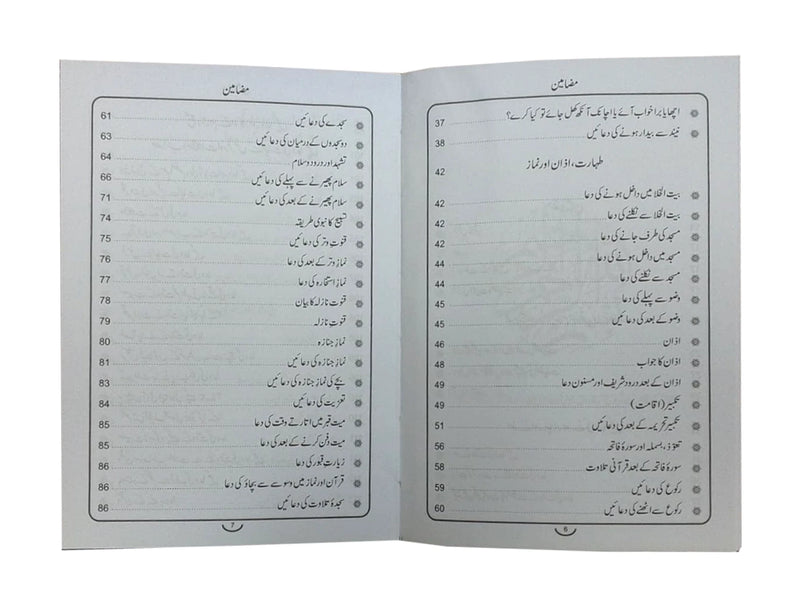 مضامین
اچھا یا برا خواب آئے یا اچانک آنکھ کھل جائے تو کیا کرے؟ 37
نیند سے بیدار ہونے کی دعائیں 38
طہارت، اذان اور نماز 42
بیت الخلا میں داخل ہونے کی دعا 42
بیت الخلا سے نکلنے کی دعا 42
مسجد کی طرف جانے کی دعا 42
مسجد میں داخل ہونے کی دعا 44
مسجد سے نکلنے کی دعا 44
وضو سے پہلے کی دعا 45
وضو کے بعد کی دعائیں 45
اذان 46
اذان کا جواب 48
اذان کے بعد درود شریف اور مسنون دعا 49
تکبیر (اقامت) 49
تکبیر تحریمہ کے بعد کی دعائیں 51
تعوذ، بسملہ اور سورۂ فاتحہ 56
سورۂ فاتحہ کے بعد قرآنی تلاوت 58
رکوع کی دعائیں 59
رکوع سے اٹھنے کی دعائیں 60
6
مضامین
سجدے کی دعائیں 61
دو سجدوں کے درمیان کی دعائیں 63
تشہد اور درود و سلام 64
سلام پھیرنے سے پہلے کی دعائیں 66
سلام پھیرنے کے بعد کی دعائیں 71
تسبیح کا نبوی طریقہ 74
قنوت وتر کی دعائیں 75
نماز وتر کے بعد کی دعا 76
نماز استخارہ کی دعا 77
قنوت نازلہ کا بیان 78
قنوت نازلہ 79
نماز جنازہ 80
نماز جنازہ کی دعائیں 81
بچے کی نماز جنازہ کی دعائیں 83
تعزیت کی دعائیں 84
میت قبر میں اتارتے وقت کی دعا 85
میت دفن کرنے کے بعد کی دعا 85
زیارت قبور کی دعا 86
قرآن اور نماز میں وسوسے سے بچاؤ کی دعا 86
سجدۂ تلاوت کی دعائیں 86
7